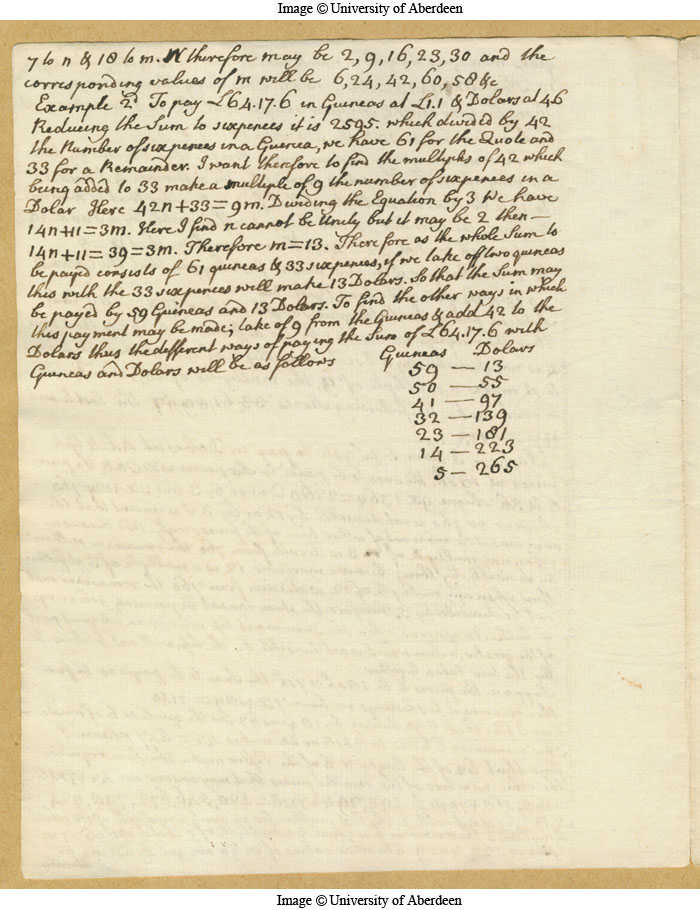 Image © University of Aberdeen
7 to n & 18 to m. N therefore may be 2, 9, 16, 23, 30 and the
corresponding values of m will be 6, 24, 42, 60, 58 &c
Example 2d To pay £64.17.6 in Guineas at £1.1 & Dolars at 4.6
Reducing the Sum to sixpences it is 2595. which divided by 42
the Number of sixpences in a Guinea, we have 61 for the Quote and
33 for a Remainder. I want therefore to find the multiples of 42 which
being added to 33 make a multiple of 9 the number of sixpences in a
Dolar Here 42n+33=9m. Dividing the Equation by 3 We have
14n+11=3m. Here I find n cannot be Unity but it may be 2 then —
14n+11= 39=3m. Therefore m=13. Therefore as the whole Sum to
be payed consists of 61 guineas & 33 sixpences, if we take off two guineas
this with the 33 sixpences will make 13 Dolars. So that the Sum may
be payed by 59 Guineas and 13 Dolars. To find the other ways in which
this payment may be made; take of 9 from the Guineas & add 42 to the
Dolars thus the different ways of paying the Sum of £64.17.6 with
Guineas and Dolars will be as follows
Guineas Dolars
59 — 13
50 — 55
41 — 97
32 — 139
23 — 181
14 — 223
5 — 265
Image © University of Aberdeen